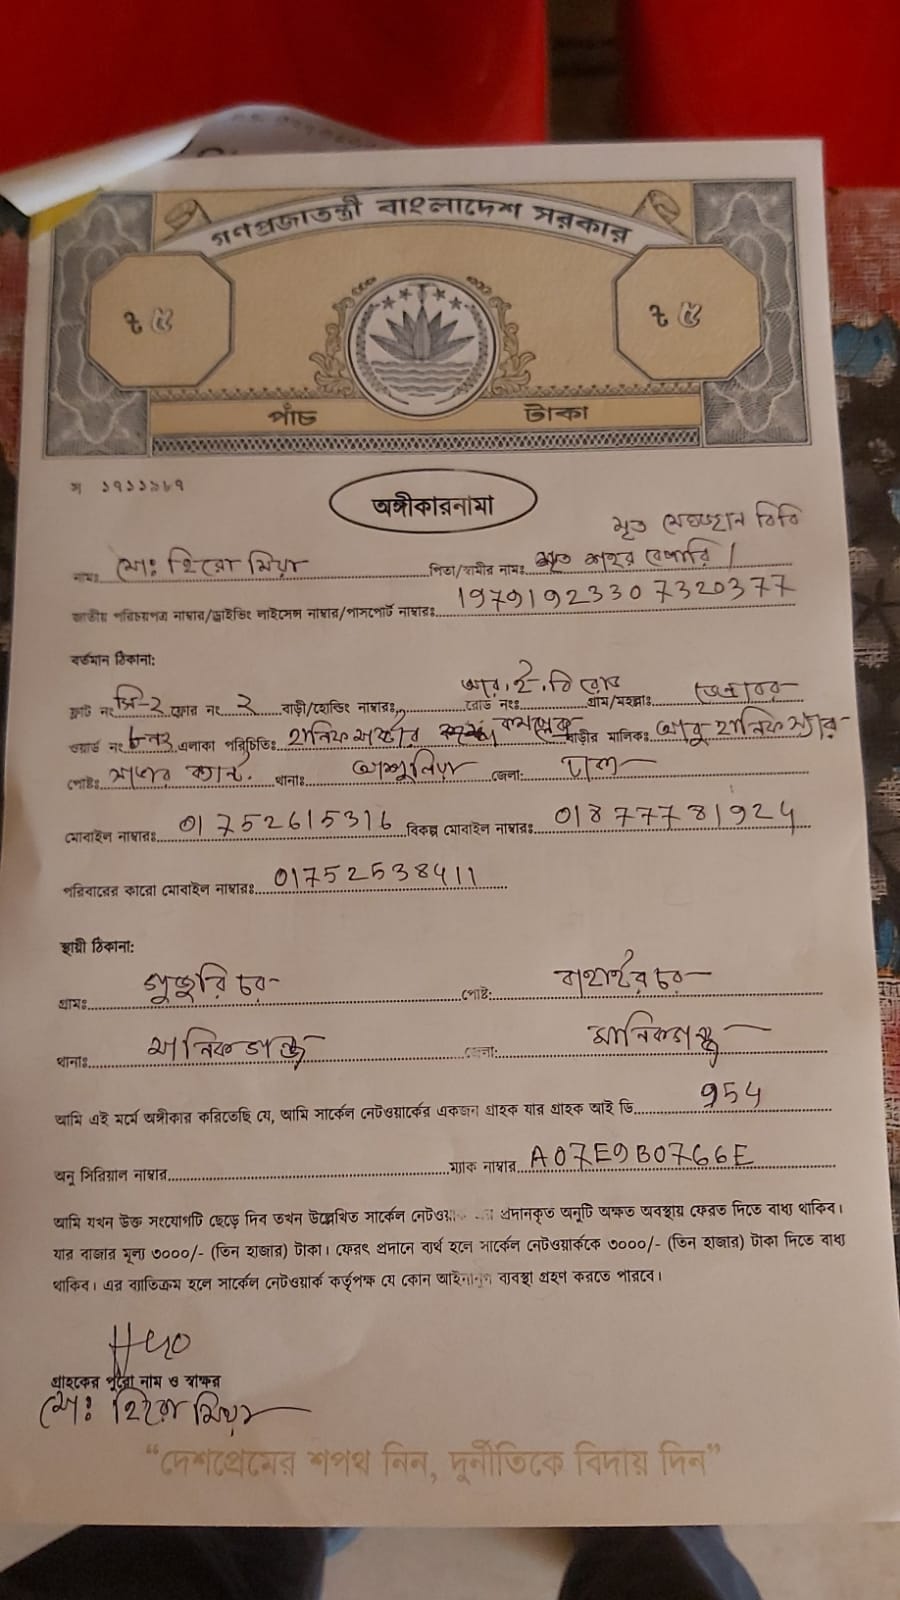 গণপ্রজাতন্ত্রী বাংলাদেশ সরকার
৳ ৫ ৳ ৫
পাঁচ টাকা
অঙ্গীকারনামা
মৃত বিবি
নামঃ মোঃ হিরো মিয়া পিতা/স্বামীর নামঃ মৃত
জাতীয় পরিচয়পত্র নাম্বার/ড্রাইভিং লাইসেন্স নাম্বার/পাসপোর্ট নাম্বারঃ 19791923307320377
বর্তমান ঠিকানা:
ফ্লাট নং সি-২ ফ্লোর নং ২ বাড়ী/হোল্ডিং নাম্বারঃ রোড নংঃ গ্রাম/মহল্লাঃ
ওয়ার্ড নং এলাকা পরিচিতিঃ হানিফ কমপ্লেক্স বাড়ীর মালিকঃ আবু হানিফ স্যার
পোষ্টঃ থানাঃ আশুলিয়া জেলাঃ ঢাকা
মোবাইল নাম্বারঃ 01752615316 বিকল্প মোবাইল নাম্বারঃ 01877781924
পরিবারের কারো মোবাইল নাম্বারঃ 01752538411
স্থায়ী ঠিকানা:
গ্রামঃ পোষ্ট:
থানাঃ মানিকগঞ্জ জেলা: মানিকগঞ্জ
আমি এই মর্মে অঙ্গীকার করিতেছি যে, আমি সার্কেল নেটওয়ার্কের একজন গ্রাহক যার গ্রাহক আই ডি 954
অনু সিরিয়াল নাম্বার ম্যাক নাম্বার A07E9B0766E
আমি যখন উক্ত সংযোগটি ছেড়ে দিব তখন উল্লেখিত সার্কেল প্রদানকৃত অনুটি অক্ষত অবস্থায় ফেরত দিতে বাধ্য থাকিব।
যার বাজার মূল্য ৩০০০/- (তিন হাজার) টাকা। ফেরৎ প্রদানে ব্যর্থ হলে সার্কেল নেটওয়ার্ককে ৩০০০/- (তিন হাজার) টাকা দিতে বাধ্য
থাকিব। এর ব্যতিক্রম হলে সার্কেল নেটওয়ার্ক কর্তৃপক্ষ যে কোন আইনানুগ ব্যবস্থা গ্রহণ করতে পারবে।
গ্রাহকের পুরো নাম ও স্বাক্ষর
মোঃ হিরো মিয়া
“দেশপ্রেমের শপথ নিন, দুর্নীতিকে বিদায় দিন”